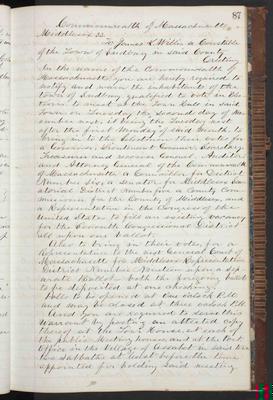 87
Commonwealth of Massachusetts
Middlesex ss.
To James L. Willis a Constable
of the Town of Sudbury in said County
Greeting
In the name of the Commonwealth of
Massachusetts you are hereby required to
notify and warn the inhabitants of the
town of Sudbury qualified to vote in Elec-
tions to meet at the Town Hall in said
Town on Tuesday the second day of No-
vember next, it being the Tuesday next
after the first Monday of said month, to
bring in to the Selectmen their votes for
a Governor, Lieutenant Governor, Secretary,
Treasurer and Receiver General, Auditor
and Attorney General of the Commonwealth
of Massachusetts, a Councillor for District
Number, a Senator for Middlesex Sen-
atorial District Number, a County Com-
missioner for the County of Middlesex, and
a Representative in the Congress of the
United States to fill an existing vacancy
for the Seventh Congressional District
all upon one ballot.
Also to bring in their votes for a
Representative to the next General Court of
Massachusetts for Middlesex Representative
District Number upon a sep-
arate ballot. Both the foregoing ballots
to be deposited at one checking.
Polls to be opened at One o'clock P.M.
and may be closed at three o'clock P.M.
And you are required to serve this
Warrant by posting an attested copy
thereof at the Town House, at each of
the public Meeting houses, and at the Post
Office in the Village of Assabet in said town
two Sabbaths at least before the time
appointed for holding said meeting